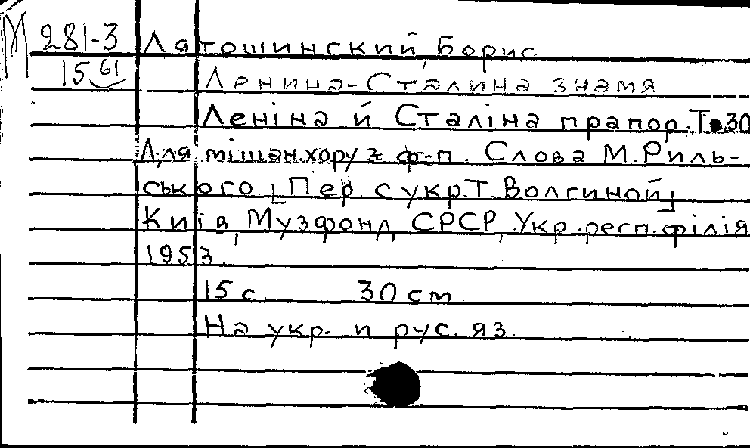 М 281-3 Лятошинский, Борис
15 61 Ленина-Сталина знамя
Леніна й Сталіна прапор. Т. 30
Для мішан. хору з ф-п. Слова М. Риль-
ського [Пер с укр. Т. Волгиной]
Київ, Музфонд СРСР, Укр. респ. філія
1953.
15 с 30 см
На укр. и рус. яз.